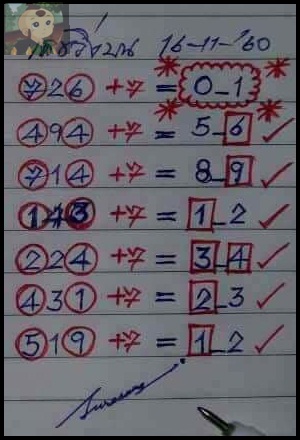 16-11-'60
726 +7 = 0-1
494 +7 = 5-6 ✓
714 +7 = 8-9 ✓
143 +7 = 1-2 ✓
224 +7 = 3-4 ✓
431 +7 = 2-3 ✓
519 +7 = 1-2 ✓